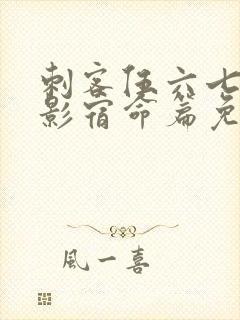 刺客伍六七
影宿命篇免
風一喜